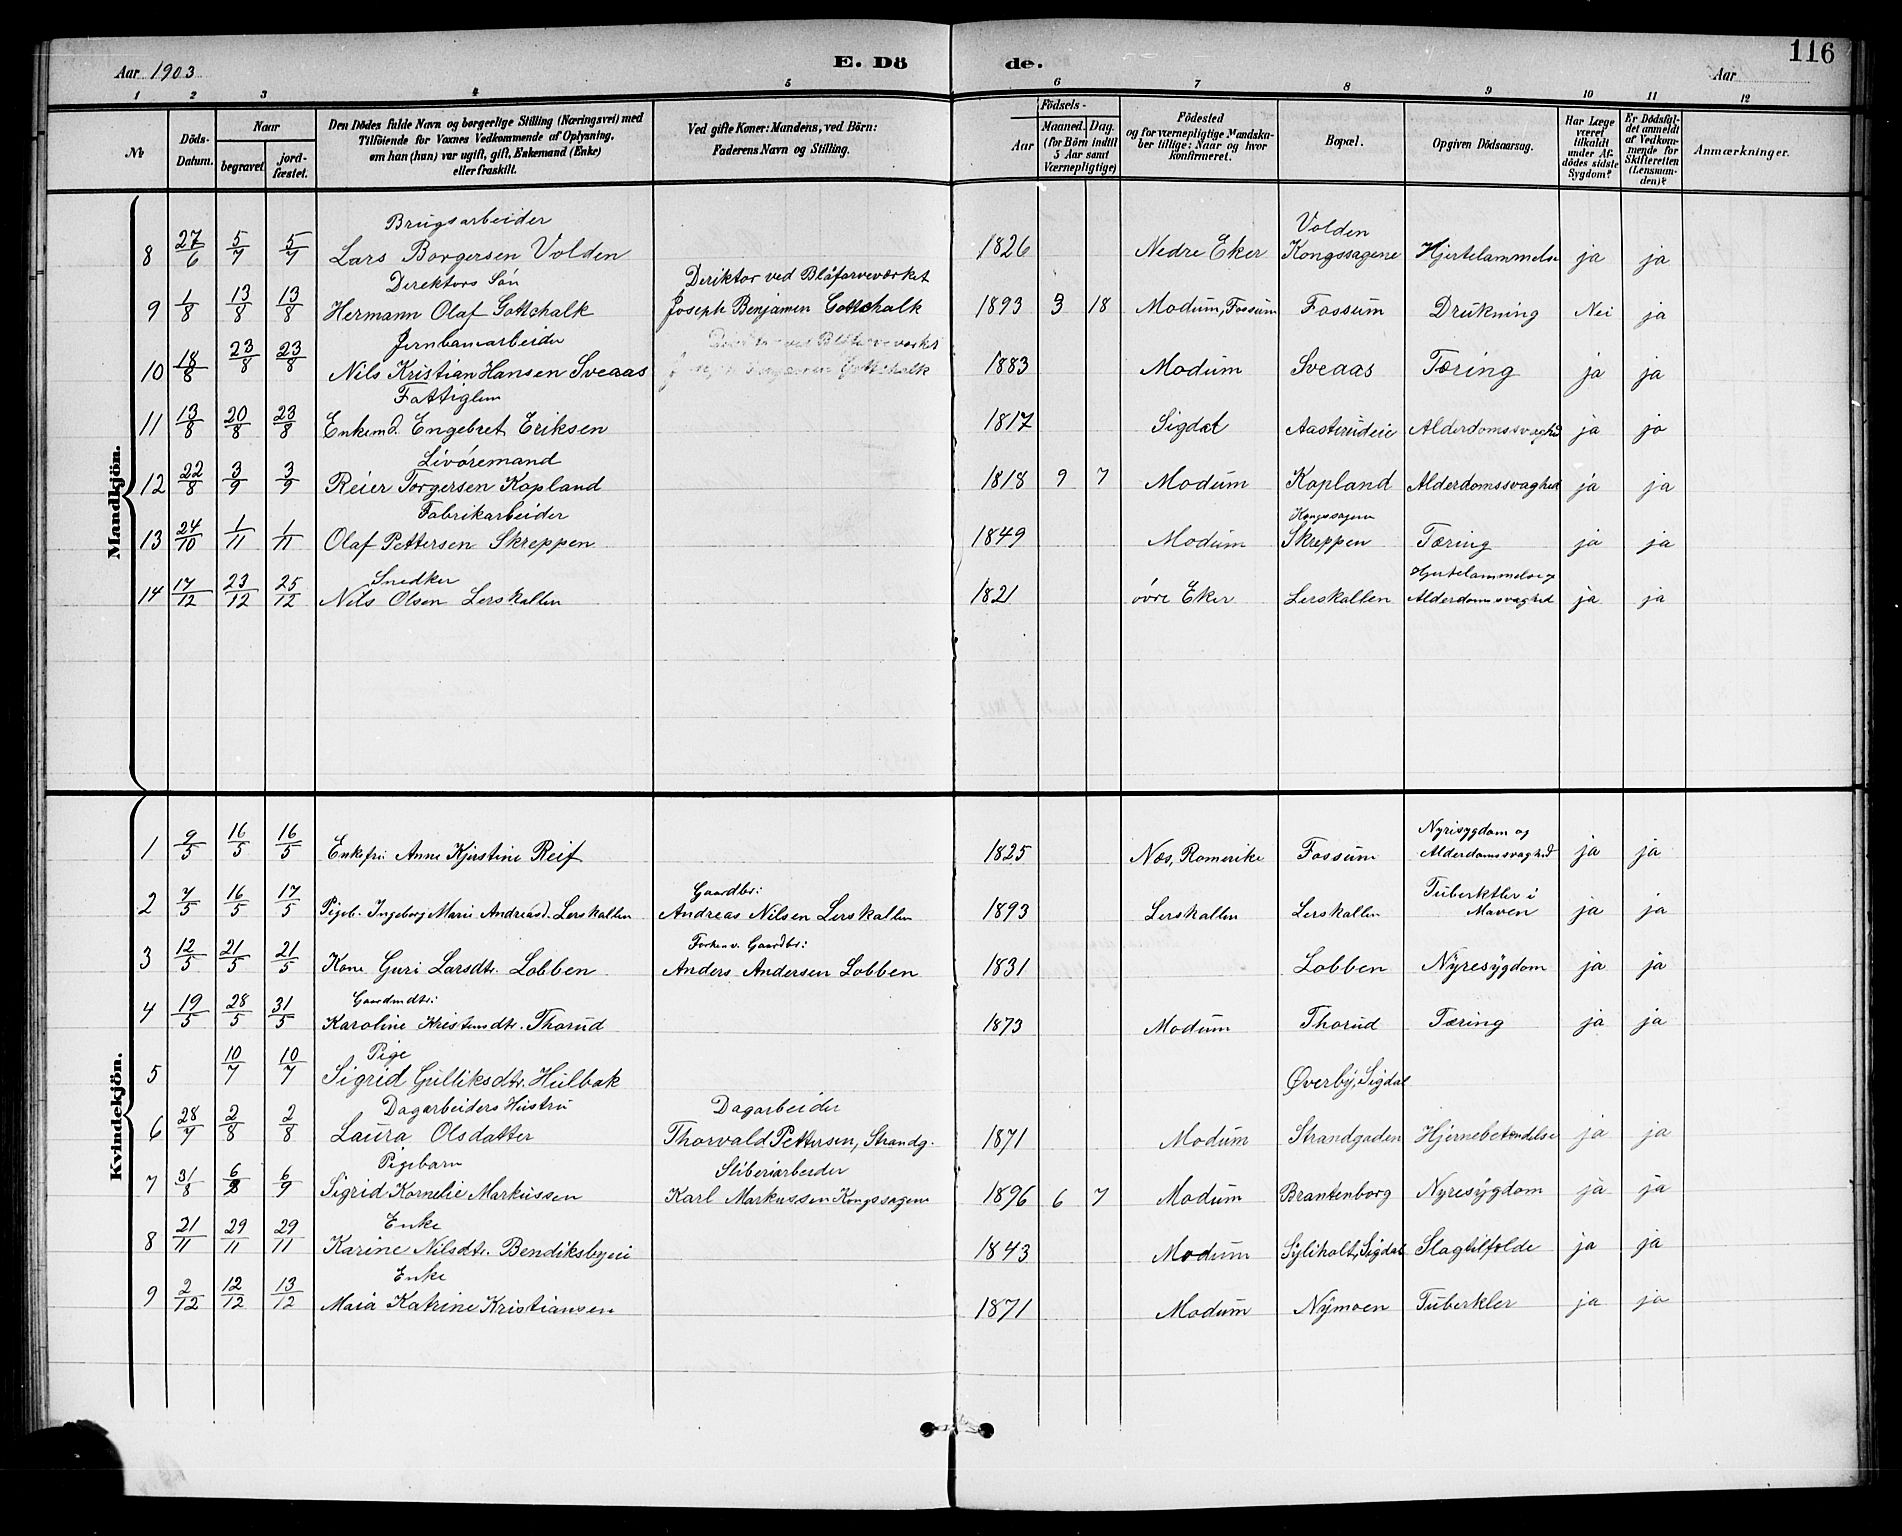 116
Aar 1903 E. Dö de. Aar
1 2 3 4 5 6 7 8 9 10 11 12
№ Döds-Datum. Naar begravet. jordfæstet. Den Dödes fulde Navn og borgerlige Stilling (Næringsvei) med Tilföiende for Voxnes Vedkommende af Oplysning, om han (hun) var ugift, gift, Enkemand (Enke) eller fraskilt. Ved gifte Koner: Mandens, ved Börn: Faderens Navn og Stilling. Födsels- Aar Maaned. Dag. (for Börn indtil 5 Aar samt Værnepligtige) Födested og for værnepligtige Mandskaber tillige: Naar og hvor konfirmeret. Bopæl. Opgiven Dödsaarsag. Har Læge været tilkaldt under Afdödes sidste Sygdom? Er Dödsfaldet anmeldt af Vedkommende for Skifteretten (Lensmanden)? Anmærkninger.
Mandkjön.
Brugsarbeider Volden
8 27/6 5/7 5/7 Lars Borgersen Volden 1826 Nedre Eker Kongssagene Hjertelammelse ja ja
Direktors Søn Deriktor ved Blåfarveværket
9 1/8 13/8 13/8 Hermann Olaf Gottchalk Joseph Benjamen Gottchalk 1893 3 18 Modum, Fossum Fossum Drukning Nei ja
Jernbanearbeider
10 18/8 23/8 23/8 Nils Kristian Hansen Sveaas 1883 Modum Sveaas Tæring ja ja
Fattiglem
11 13/8 20/8 23/8 Enkemd. Engebret Eriksen 1817 Sigdal Aasterudeie Alderdomssvaghed ja ja
Livøremand
12 22/8 3/9 3/9 Reier Torgersen Kopland 1818 9 7 Modum Kopland Alderdomssvaghed ja ja
Fabrikarbeider Kongssagene
13 24/10 1/11 1/11 Olaf Pettersen Skreppen 1849 Modum Skreppen Tæring ja ja
Snedker Hjertelammelse og
14 17/12 23/12 25/12 Nils Olsen Lerskallen 1821 øvre Eker Lerskallen Alderdomssvaghed ja ja
Kvindekjön.
Nyrisygdom og
1 9/5 16/5 16/5 Enkefru Anne Kjerstine Reif 1825 Næs, Romerike Fossum Alderdomssvaghed ja ja
Gaardbr: Tuberktler i
2 7/5 16/5 17/5 Pigeb. Ingeborg Marie Andreasd. Lerskallen Andreas Nilsen Lerskallen 1893 Lerskallen Lerskallen Maven ja ja
Forhenv. Gaardbr:
3 12/5 21/5 21/5 Kone Guri Larsdtr. Lobben Anders Andersen Lobben 1831 Lobben Nyresygdom ja ja
Gaardmdtr:
4 19/5 28/5 31/5 Karoline Kristensdtr. Thorud 1873 Modum Thorud Tæring ja ja
Pige
5 10/7 10/7 Sigrid Gulliksdtr. Hulbak Øverby, Sigdal
Dagarbeiders Hustru Dagarbeider
6 28/7 2/8 2/8 Laura Olsdatter Thorvald Pettersen, Strandg. 1871 Modum Strandgaden Hjernebetændelse ja ja
Pigebarn Sliberiarbeider
7 31/8 6/8 6/9 Sigrid Kornelie Markussen Karl Markussen Kongssagene 1896 6 7 Modum Brantenborg Nyresygdom ja ja
Enke
8 21/11 29/11 29/11 Karine Nilsdtr. Bendiksbyeie 1843 Modum Syliholt, Sigdal Slagtilfælde ja ja
Enke
9 2/12 12/12 13/12 Maia Katrine Kristiansen 1871 Modum Nymoen Tuberkler ja ja